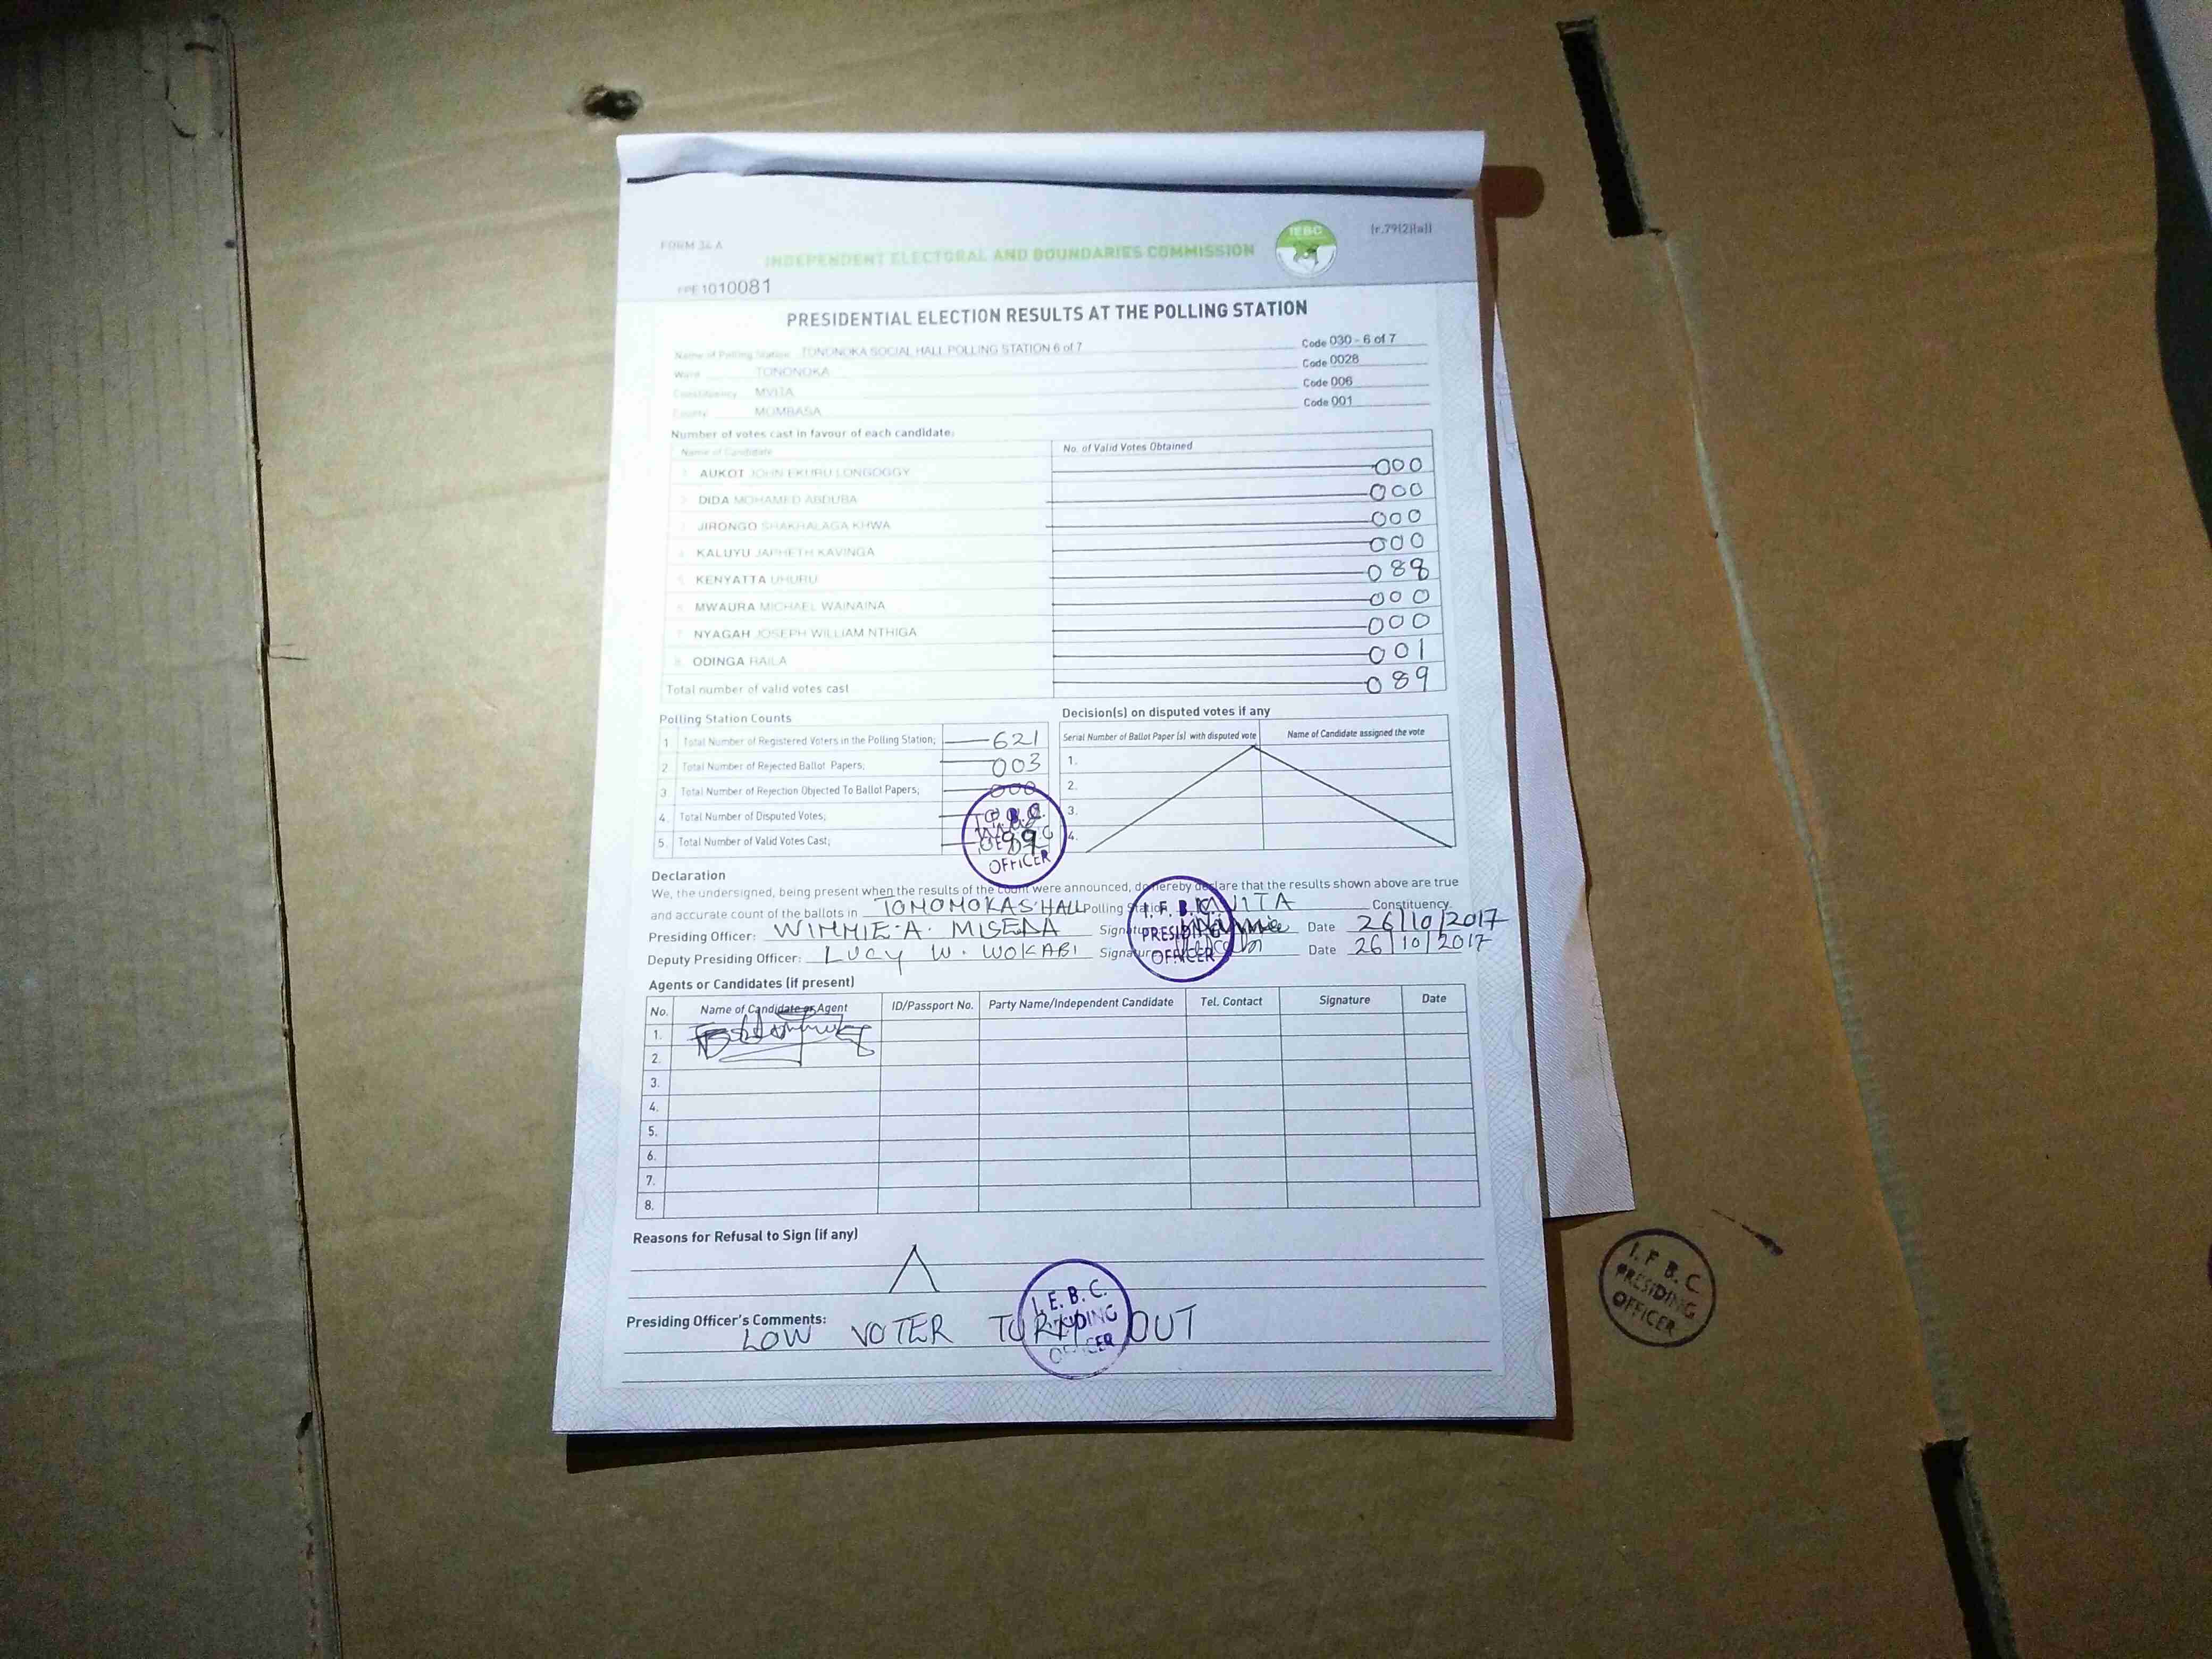 FORM 34 A
(r.79(2)(a))
IEBC
INDEPENDENT ELECTORAL AND BOUNDARIES COMMISSION
PPE1010081
PRESIDENTIAL ELECTION RESULTS AT THE POLLING STATION
Name of Polling Station TONONOKA SOCIAL HALL POLLING STATION 6 of 7 Code 030 - 6 of 7
Ward TONONOKA Code 0028
Constituency MVITA Code 006
County MOMBASA Code 001
Number of votes cast in favour of each candidate;
Name of Candidate No. of Valid Votes Obtained
1. AUKOT JOHN EKURU LONGOGGY 000
2. DIDA MOHAMED ABDUBA 000
3. JIRONGO SHAKHALAGA KHWA 000
4. KALUYU JAPHETH KAVINGA 000
5. KENYATTA UHURU 088
6. MWAURA MICHAEL WAINAINA 000
7. NYAGAH JOSEPH WILLIAM NTHIGA 000
8. ODINGA RAILA 001
Total number of valid votes cast 089
Polling Station Counts
1 Total Number of Registered Voters in the Polling Station; 621
2. Total Number of Rejected Ballot Papers; 003
3. Total Number of Rejection Objected To Ballot Papers; 000
4. Total Number of Disputed Votes;
5. Total Number of Valid Votes Cast;
OFFICER
Decision(s) on disputed votes if any
Serial Number of Ballot Paper (s) with disputed vote Name of Candidate assigned the vote
1.
2.
3.
4.
Declaration
We, the undersigned, being present when the results of the count were announced, do hereby declare that the results shown above are true
and accurate count of the ballots in TONONOKA S'HALL Polling Station MVITA Constituency.
Presiding Officer: WINNIE A. MISEDA Signature Date 26/10/2017
Deputy Presiding Officer: LUCY W. WOKABI Signature Date 26/10/2017
I.E.B.C.
PRESIDING
OFFICER
Agents or Candidates (if present)
No. Name of Candidate or Agent ID/Passport No. Party Name/Independent Candidate Tel. Contact Signature Date
1.
2.
3.
4.
5.
6.
7.
8.
Reasons for Refusal to Sign (if any)
Presiding Officer's Comments:
LOW VOTER TURN OUT
I.E.B.C.
PRESIDING
OFFICER
I.E.B.C.
PRESIDING
OFFICER